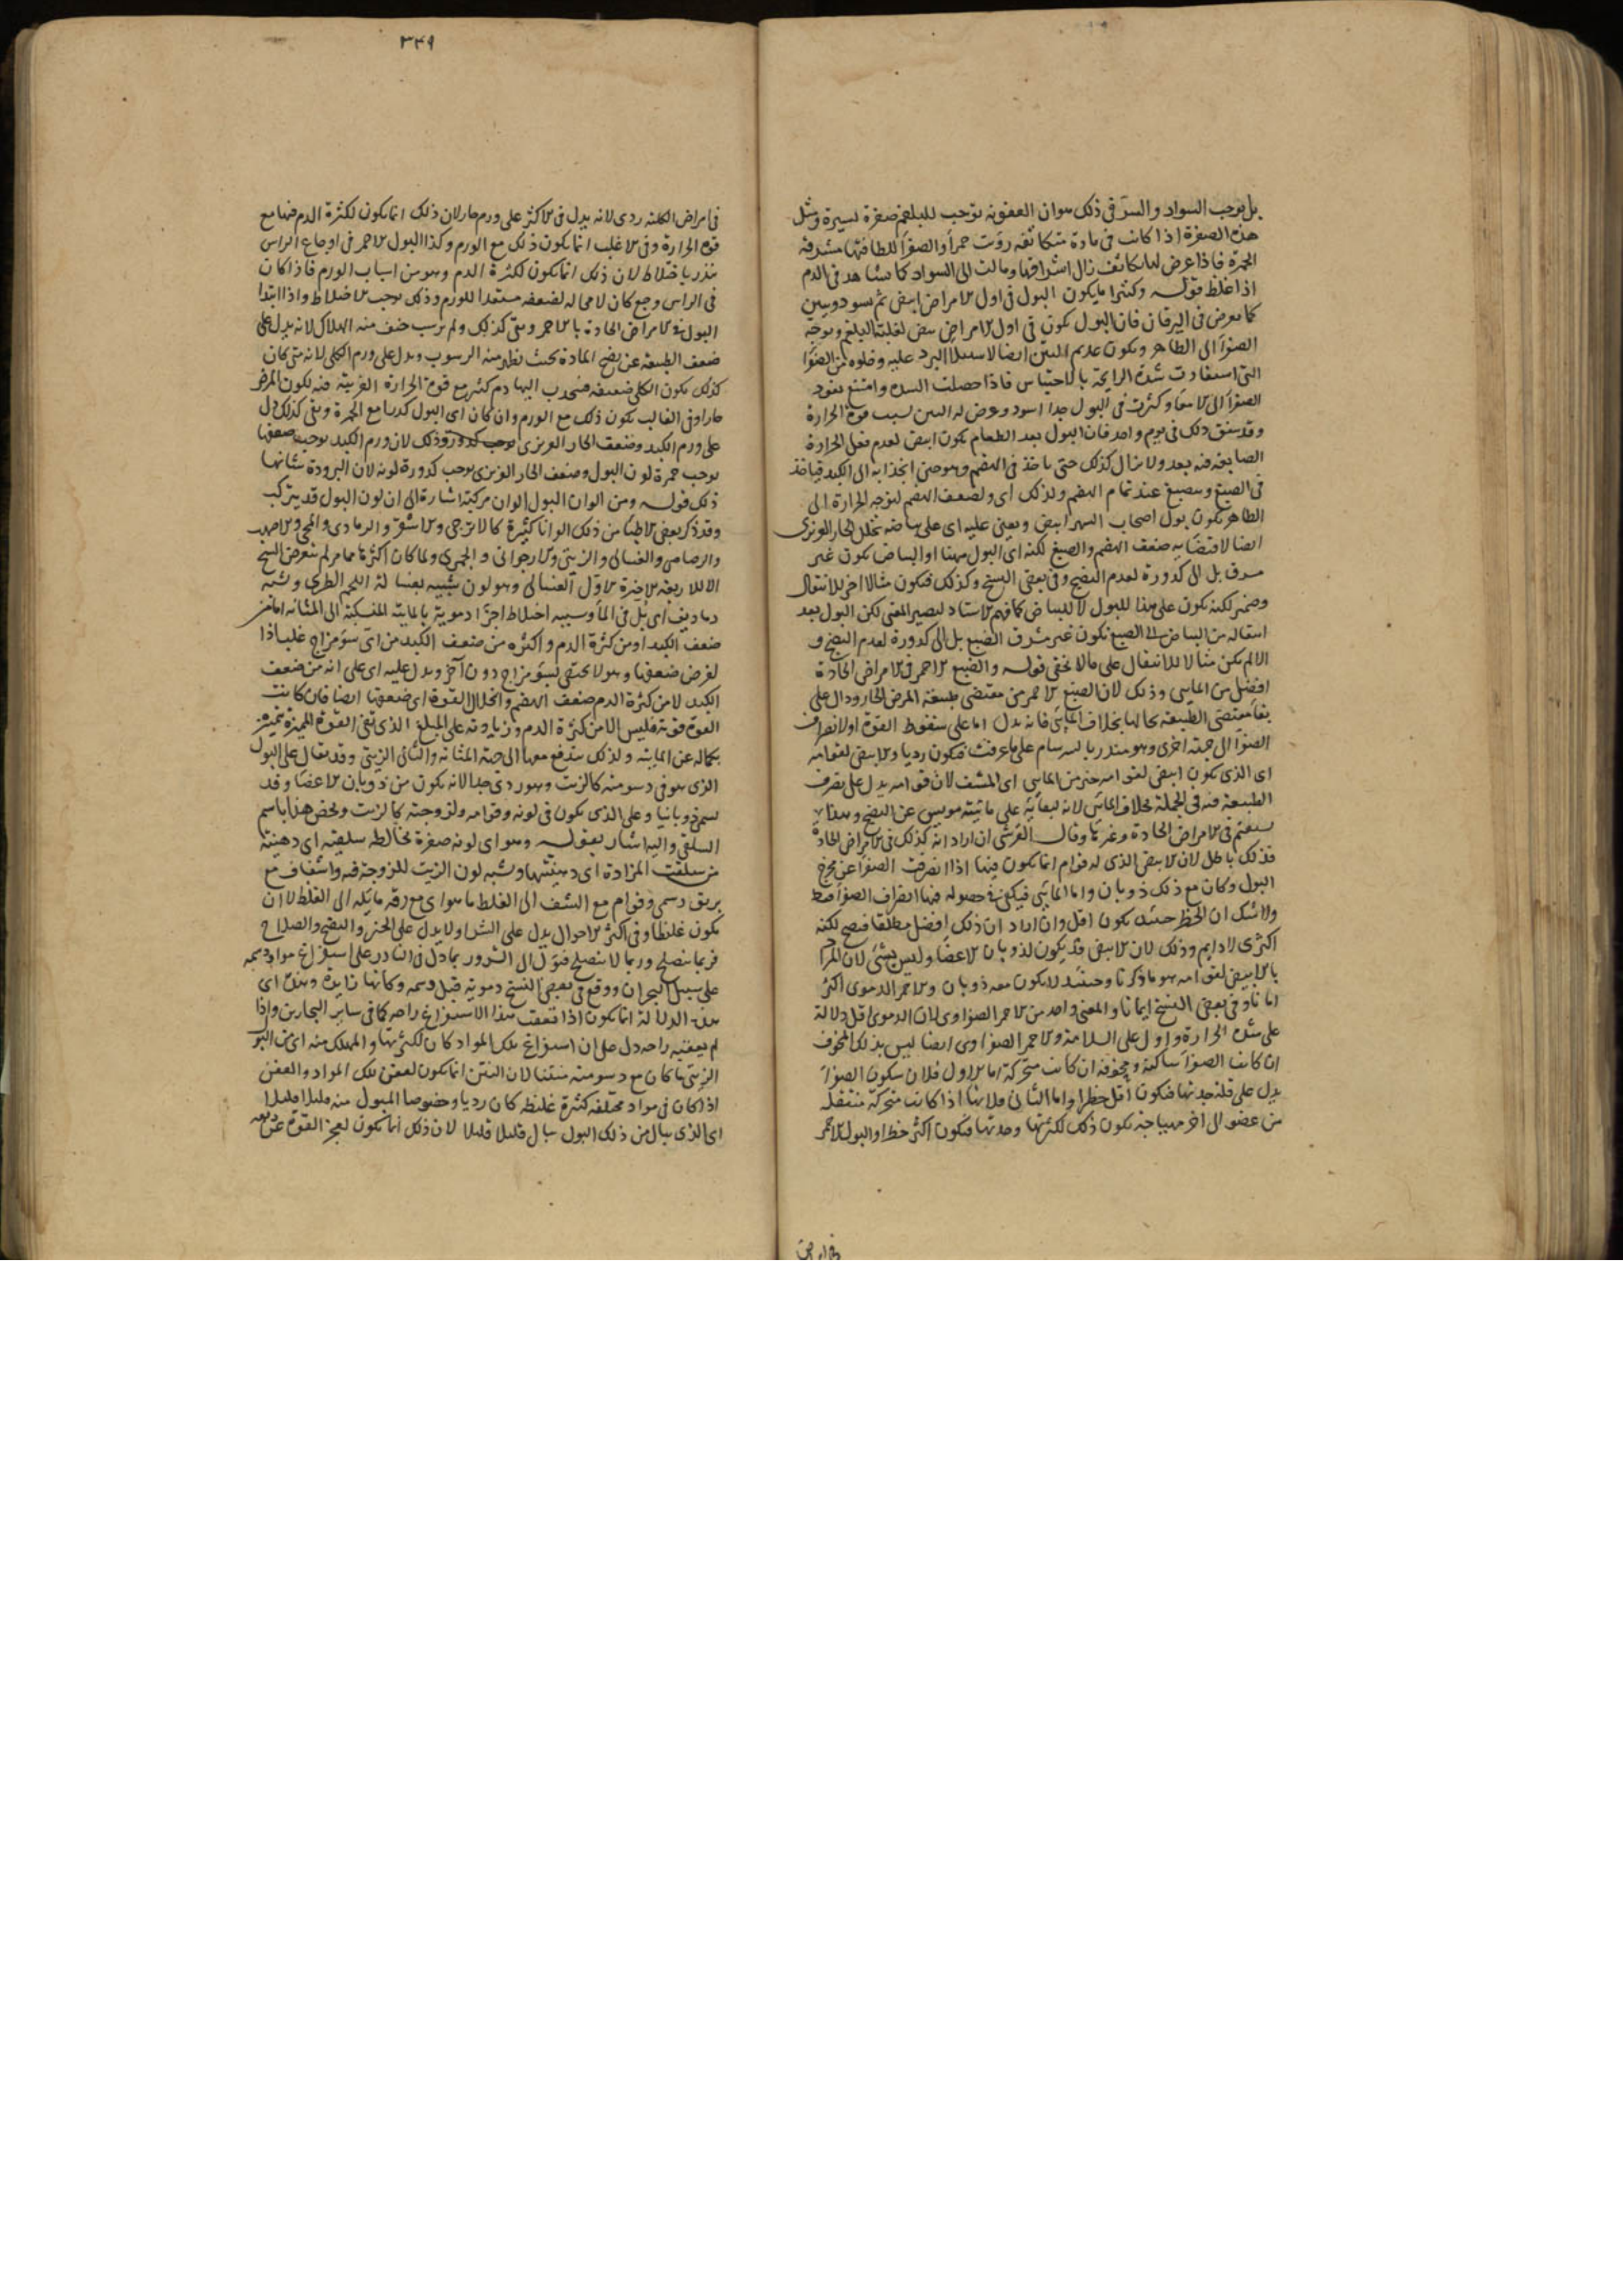 بل يوجب السواد والسر في ذلك هو ان العفونه توجب للبلغم صفرة يسيرة ومثل
هذه الصفرة اذا كانت في مادة متكاثفه رؤيت حمرا والصفرا للطافتها مشرقة
الحمرة فاذا عرض لها تكاثف زال اشراقها ومالت الى السواد كما نشاهد في الدم
اذا غلظ قوله وكثيرا ما يكون البول في اول الامراض ابيض ثم يسود وينتن
كما يعرض في اليرقان فان البول يكون في اول الامراض ابيض لغلبة البلغم وتوجه
الصفرا الى الظاهر ويكون عديم النتن ايضا لاستيلا البرد عليه وخلوه من الصفرا
التي استفادت شدة الرايحة بالاحتباس فاذا حصلت السدة وامتنع نفوذ
الصفرا الى الامعا وكثرت في البول جدا اسود وعرض له النتن بسبب قوة الحرارة
وقد يتفق ذلك في يوم واحد فان البول بعد الطعام يكون ابيض لعدم فعل الحرارة
الصابغه فيه بعد ولا يزال كذلك حتى ياخذ في الهضم وهو حين انجذابه الى الكبد فياخذ
في الصبغ وينصبغ عند تمام الهضم ولذلك اي ولضعف الهضم لتوجه الحرارة الى
الظاهر يكون بول اصحاب السهر ابيض ويعين عليه اي على بياضه تحلل الحار الغريزي
ايضا لاقتضايه ضعف الهضم والصبغ لكنه اي البول ههنا او البياض يكون غير
مشرق بل الى كدورة لعدم النضج وفي بعض النسخ وكذلك فيكون مثالا اخر للانتقال
وضمير لكنه يكون على هذا للبول لا للبياض كما فهم الاستاد ليصير المعنى لكن البول بعد
انتقاله من البياض الى الصبغ يكون غير مشرق الصبغ بل الى كدورة لعدم النضج و
الا لم يكن مثالا للانتقال على ما لا يخفى قوله والصبغ الاحمر في الامراض الحادة
افضل من المايي وذلك لان الصبغ الاحمر من مقتضى طبيعة المرض الحار ودال على
بقا مقتضى الطبيعة بحالها بخلاف المايي فانه يدل اما على سقوط القوة او لانصراف
الصفرا الى جهة اخرى وهو منذر بالسرسام على ما عرفت فيكون رديا والابيض لقوامه
اي الذي يكون ابيض لقوامه خير من المايي اي المشف لان قوامه يدل على تصرف
الطبيعة فيه في الجملة بخلاف المايي لانه لبقايه على مائيته مويس عن النضج وهذا
يستقيم في الامراض الحادة وغيرها وقال القرشي ان اراد انه كذلك في الامراض الحادة
فذلك باطل لان الابيض الذي له قوام انما يكون فيها اذا انصرفت الصفرا عن مخرج
البول وكان مع ذلك ذوبان واما المايي فيكفي في حصوله فيها انصراف الصفرا فقط
ولا شك ان الخطر حينئذ يكون اقل وان اراد ان ذلك افضل مطلقا فصحيح لكنه
اكثري لا دايم وذلك لان الابيض قد يكون لذوبان الاعضا وليس بشي لان المراد
بالابيض لقوامه هو ما ذكرنا وحينئذ لا يكون معه ذوبان والاحمر الدموي اكثر
امانا وفي بعض النسخ ايمانا والمعنى واحد من الاحمر الصفراوي لان الدموي اقل دلالة
على شدة الحرارة وادل على السلامة والاحمر الصفراوي ايضا ليس بذلك المخوف
ان كانت الصفرا ساكنة ومخوفة ان كانت متحركة اما الاول فلان سكون الصفرا
يدل على قلة حدتها فيكون اقل خطرا واما الثاني فلانها اذا كانت متحركة منتقله
من عضو الى اخر مهياجة يكون ذلك لكثرتها وحدتها فيكون اكثر خطرا والبول الاحمر
٣٤٩
في امراض الكلية ردي لانه يدل في الاكثر على ورم حار لان ذلك انما يكون لكثرة الدم فيها مع
قوة الحرارة وفي الاغلب انما يكون ذلك مع الورم وكذا البول الاحمر في اوجاع الراس
منذر باختلاط لان ذلك انما يكون لكثرة الدم وهو من اسباب الورم فاذا كان
في الراس وجع كان لا محاله لضعفه مستعدا للورم وذلك يوجب الاختلاط واذا ابتدا
البول في الامراض الحادة بالاحمر وبقي كذلك ولم يرسب خيف منه الهلاك لانه يدل على
ضعف الطبيعة عن نضج المادة بحيث يظهر منه الرسوب ويدل على ورم الكلى لانه متى كان
كذلك يكون الكلى ضعيفه فينجذب اليها دم كثير مع قوة الحرارة الغريبة فيه لكون المرض
حارا وفي الغالب يكون ذلك مع الورم وان كان اي البول كدرا مع الحمرة وبقي كذلك دل
على ورم الكبد وضعف الحار الغريزي وذلك لان ورم الكبد يوجب ضعفها
يوجب حمرة لون البول وضعف الحار الغريزي يوجب كدورة لونه لان البرودة شانها
ذلك قوله ومن الوان البول الوان مركبة اشارة الى ان لون البول قد يتركب
وقد ذكر بعض الاطبا من ذلك الوانا كثيرة كالاترجي والاشقر والرمادي والمحي والاصهب
والرصاصي والغسالي والزيتي والارجواني والجمري ولما كان اكثرها مما مر لم يتعرض الشيخ
الا للاربعة الاخيرة الاول الغسالي وهو لون شبيه بغسالة اللحم الطري ويشبه
دما ديف اي بل في الما وسببه اختلاط اجزا دموية بالمايية المنسكبة الى المثانه اما من
ضعف الكبد او من كثرة الدم واكثره من ضعف الكبد من اي سو مزاج غلب اذا
لغرض ضعفها وهو لا يختص بسو مزاج دون آخر ويدل عليه اي على انه من ضعف
الكبد لا من كثرة الدم ضعف الهضم وانحلال القوة اي ضعفها ايضا فان كانت
القوة قوية فليس الا من كثرة الدم وزيادته على المبلغ الذي تفي القوة المميزة بتميزه
بكماله عن المايية ولذلك يندفع معها الى جهة المثانة والثاني الزيتي وقد يقال على البول
الذي هو في دسومته كالزيت وهو ردي جدا لانه يكون من ذوبان الاعضا وقد
يسمى ذوبانيا وعلى الذي يكون في لونه وقوامه ولزوجته كالزيت ويخص هذا باسم
السلقي واليه اشار بقوله وهو اي لونه صفرة يخالطه سلقيه اي دهنية
من سلقت المزادة اي دهنتها ويشبه لون الزيت للزوجة فيه واشفاف مع
بريق دسمي وقوام مع الشف الى الغلظ ما هو اي مع رقه مايله الى الغلظ لا ان
يكون غليظا وفي اكثر الاحوال يدل على الشر ولا يدل على الخير والنضج والصلاح
فربما ينصلح وربما لا ينصلح فيؤل الى الشرور بما دل في النادر على استفراغ مواد دسمه
على سبيل البحران ووقع في بعض النسخ دموية قبل دسمه وكانها زايدة وهذه اي
هذه الدلالة انما يكون اذا تعقب هذا الاستفراغ راحه كما في ساير البحارين واذا
لم يعقبه راحه دل على ان استفراغ تلك المواد كان لكثرتها والمهلك منه اي من البول
الزيتي ما كان مع دسومته منتنا لان النتن انما يكون لعفن تلك المواد والعفن
اذا كان في مواد مختلفه كثيرة غليظه كان رديا وخصوصا المبول منه قليلا قليلا
اي الذي يبال من ذلك البول يبال قليلا قليلا لان ذلك انما يكون لعجز القوة عن دفعه